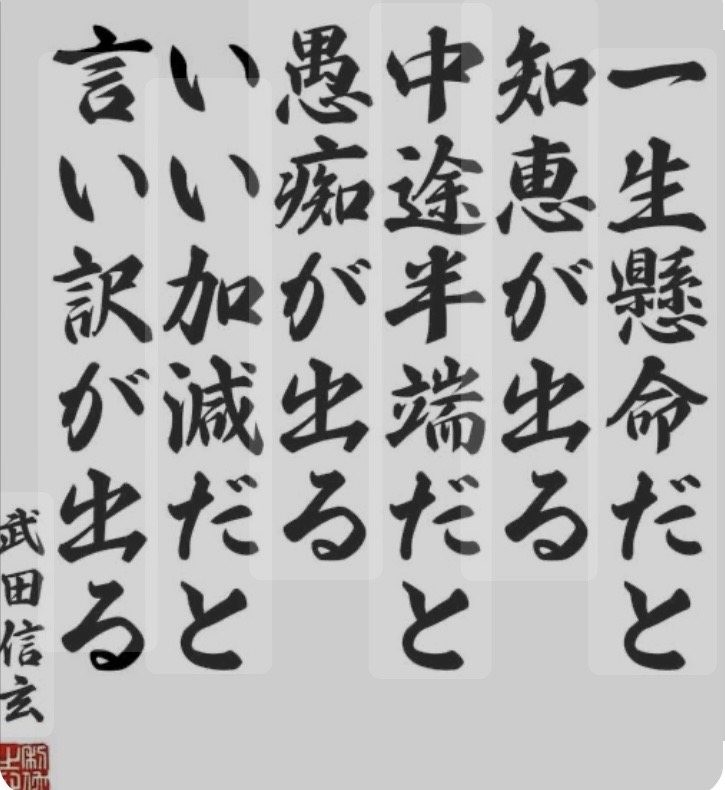 一生懸命だと
知恵が出る
中途半端だと
愚痴が出る
いい加減だと
言い訳が出る
武田信玄